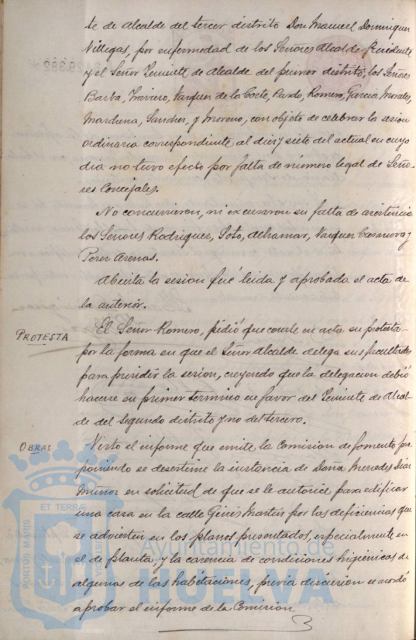 te de alcalde del tercer distrito Don Manuel Dominguez
Villegas, por enfermedad de los Señores Alcalde Presidente
y el Señor Teniente de Alcalde del primer distrito, los Señores
Barba, Vazquez de la Corte, Pardo, Romero, Garcia Morales,
Marchena, Sanchez, y Moreno, con objeto de celebrar la sesion
ordinaria correspondiente al diez y siete del actual en cuyo
dia no tuvo efecto por falta de número legal de Seño-
res Concejales.
No concurrieron, ni excusaron su falta de asistencia
los Señores Rodriguez, Soto, Alhamar, Vazquez y
Perez Arenas.
Abierta la sesion fué leida y aprobada el acta de
la anterior.
PROTESTA
El Señor Romero, pidió que conste en acta su protesta
por la forma en que el Señor Alcalde delega sus facultades
para presidir la sesion, creyendo que la delegacion debió
hacerse en primer termino en favor del Teniente de Alcal-
de del Segundo distrito y no del tercero.
OBRAS
Visto el informe que emite la Comision de fomento pro-
poniendo se desestime la instancia de Doña Mercedes Diaz
Muñoz en solicitud de que se le autorice para edificar
una casa en la calle Ginés Martin por las deficiencias que
se advierten en los planos presentados, especialmente en
el de planta y la carencia de condiciones higiénicas de
algunas de las habitaciones, previa discusion se acordó
aprobar el informe de la Comision.
PORTUS MARIS
ET TERRAE
Ayuntamiento de
HUELVA